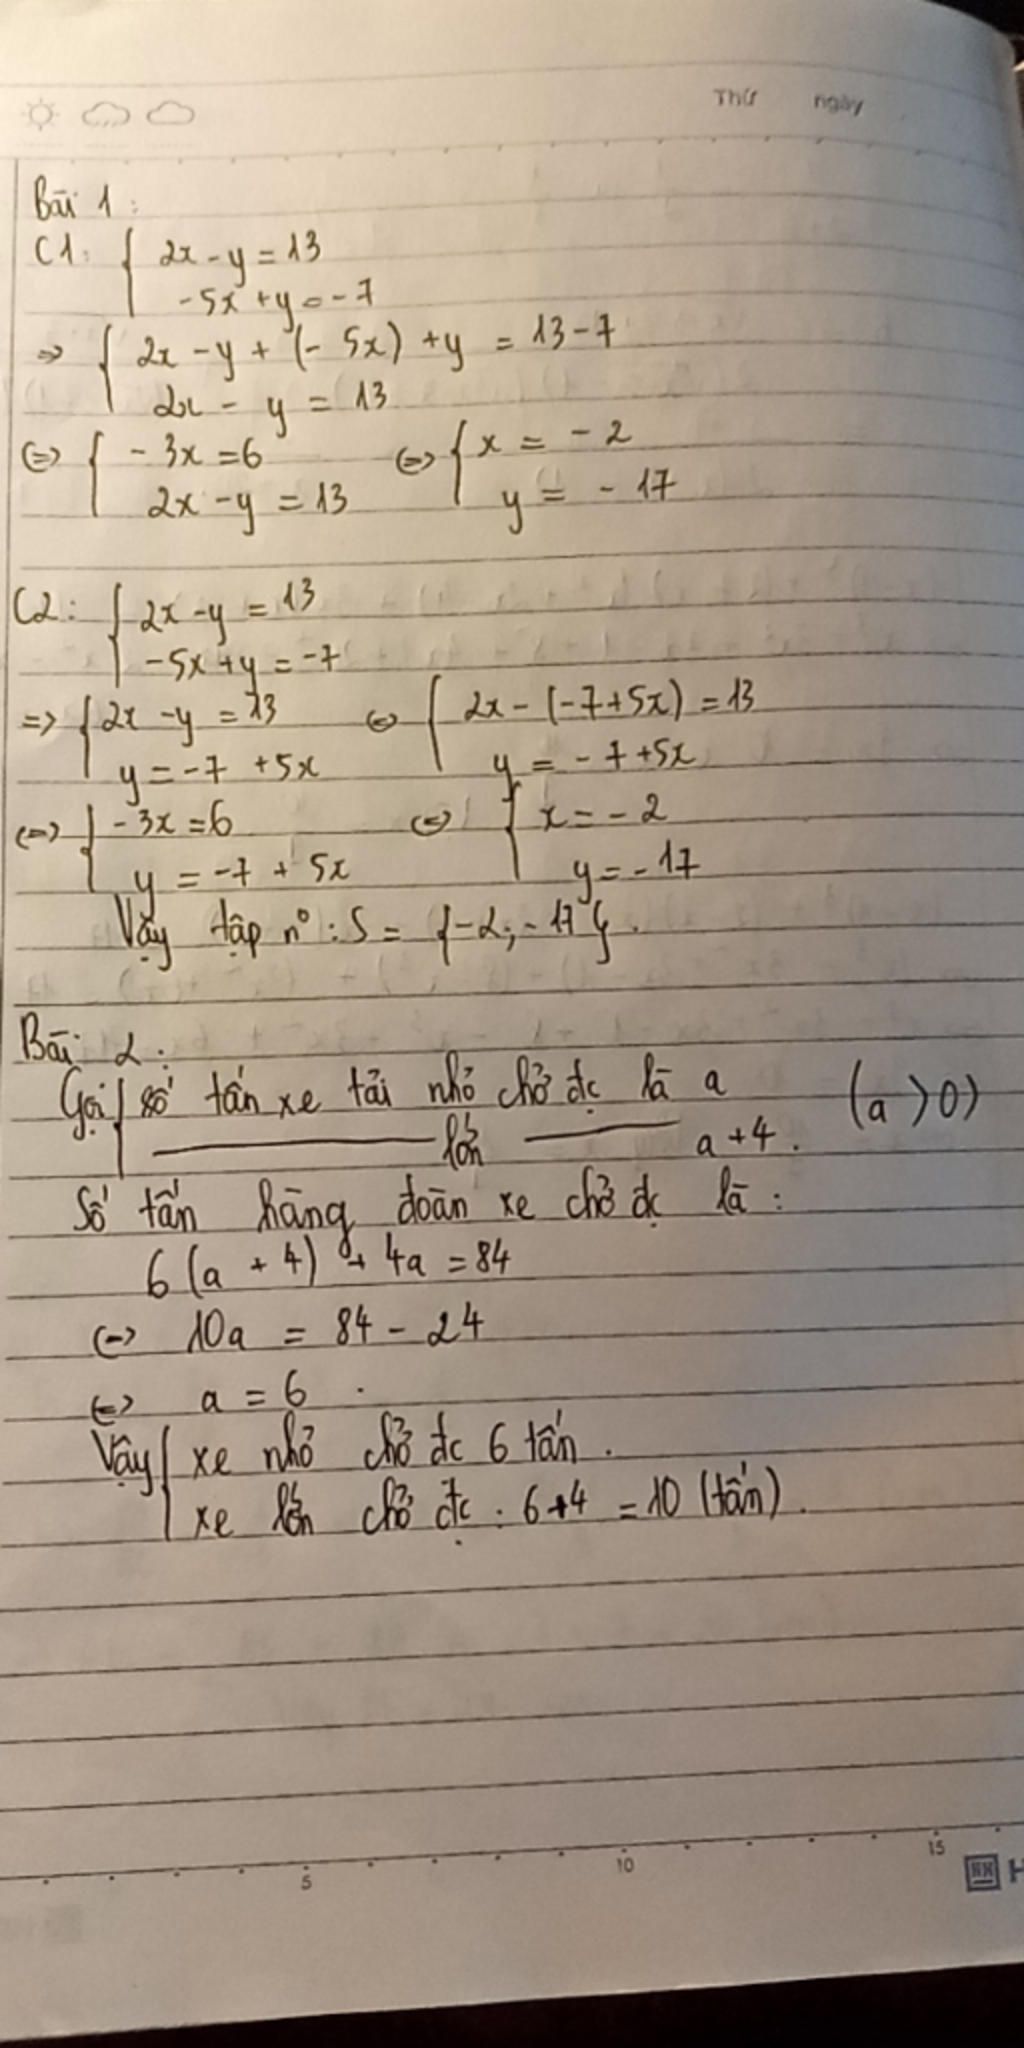 Thứ ngày
Bài 1:
C1: { 2x - y = 13
-5x + y = -7
=> { 2x - y + (- 5x) + y = 13 - 7
2x - y = 13
<=> { - 3x = 6 <=> { x = - 2
2x - y = 13 y = - 17
C2: { 2x - y = 13
-5x + y = -7
=> { 2x - y = 13 <=> { 2x - (-7 + 5x) = 13
y = -7 + 5x y = - 7 + 5x
<=> { - 3x = 6 <=> { x = - 2
y = -7 + 5x y = - 17
Vậy tập nº: S = {-2; - 17}.
Bài 2:
Gọi { số tấn xe tải nhỏ chở đc là a (a > 0)
——— lớn ——— a + 4.
Số tấn hàng đoàn xe chở đc là:
6 (a + 4) + 4a = 84
<=> 10a = 84 - 24
<=> a = 6.
Vậy { xe nhỏ chở đc 6 tấn.
xe lớn chở đc: 6 + 4 = 10 (tấn).
5 10 15
H